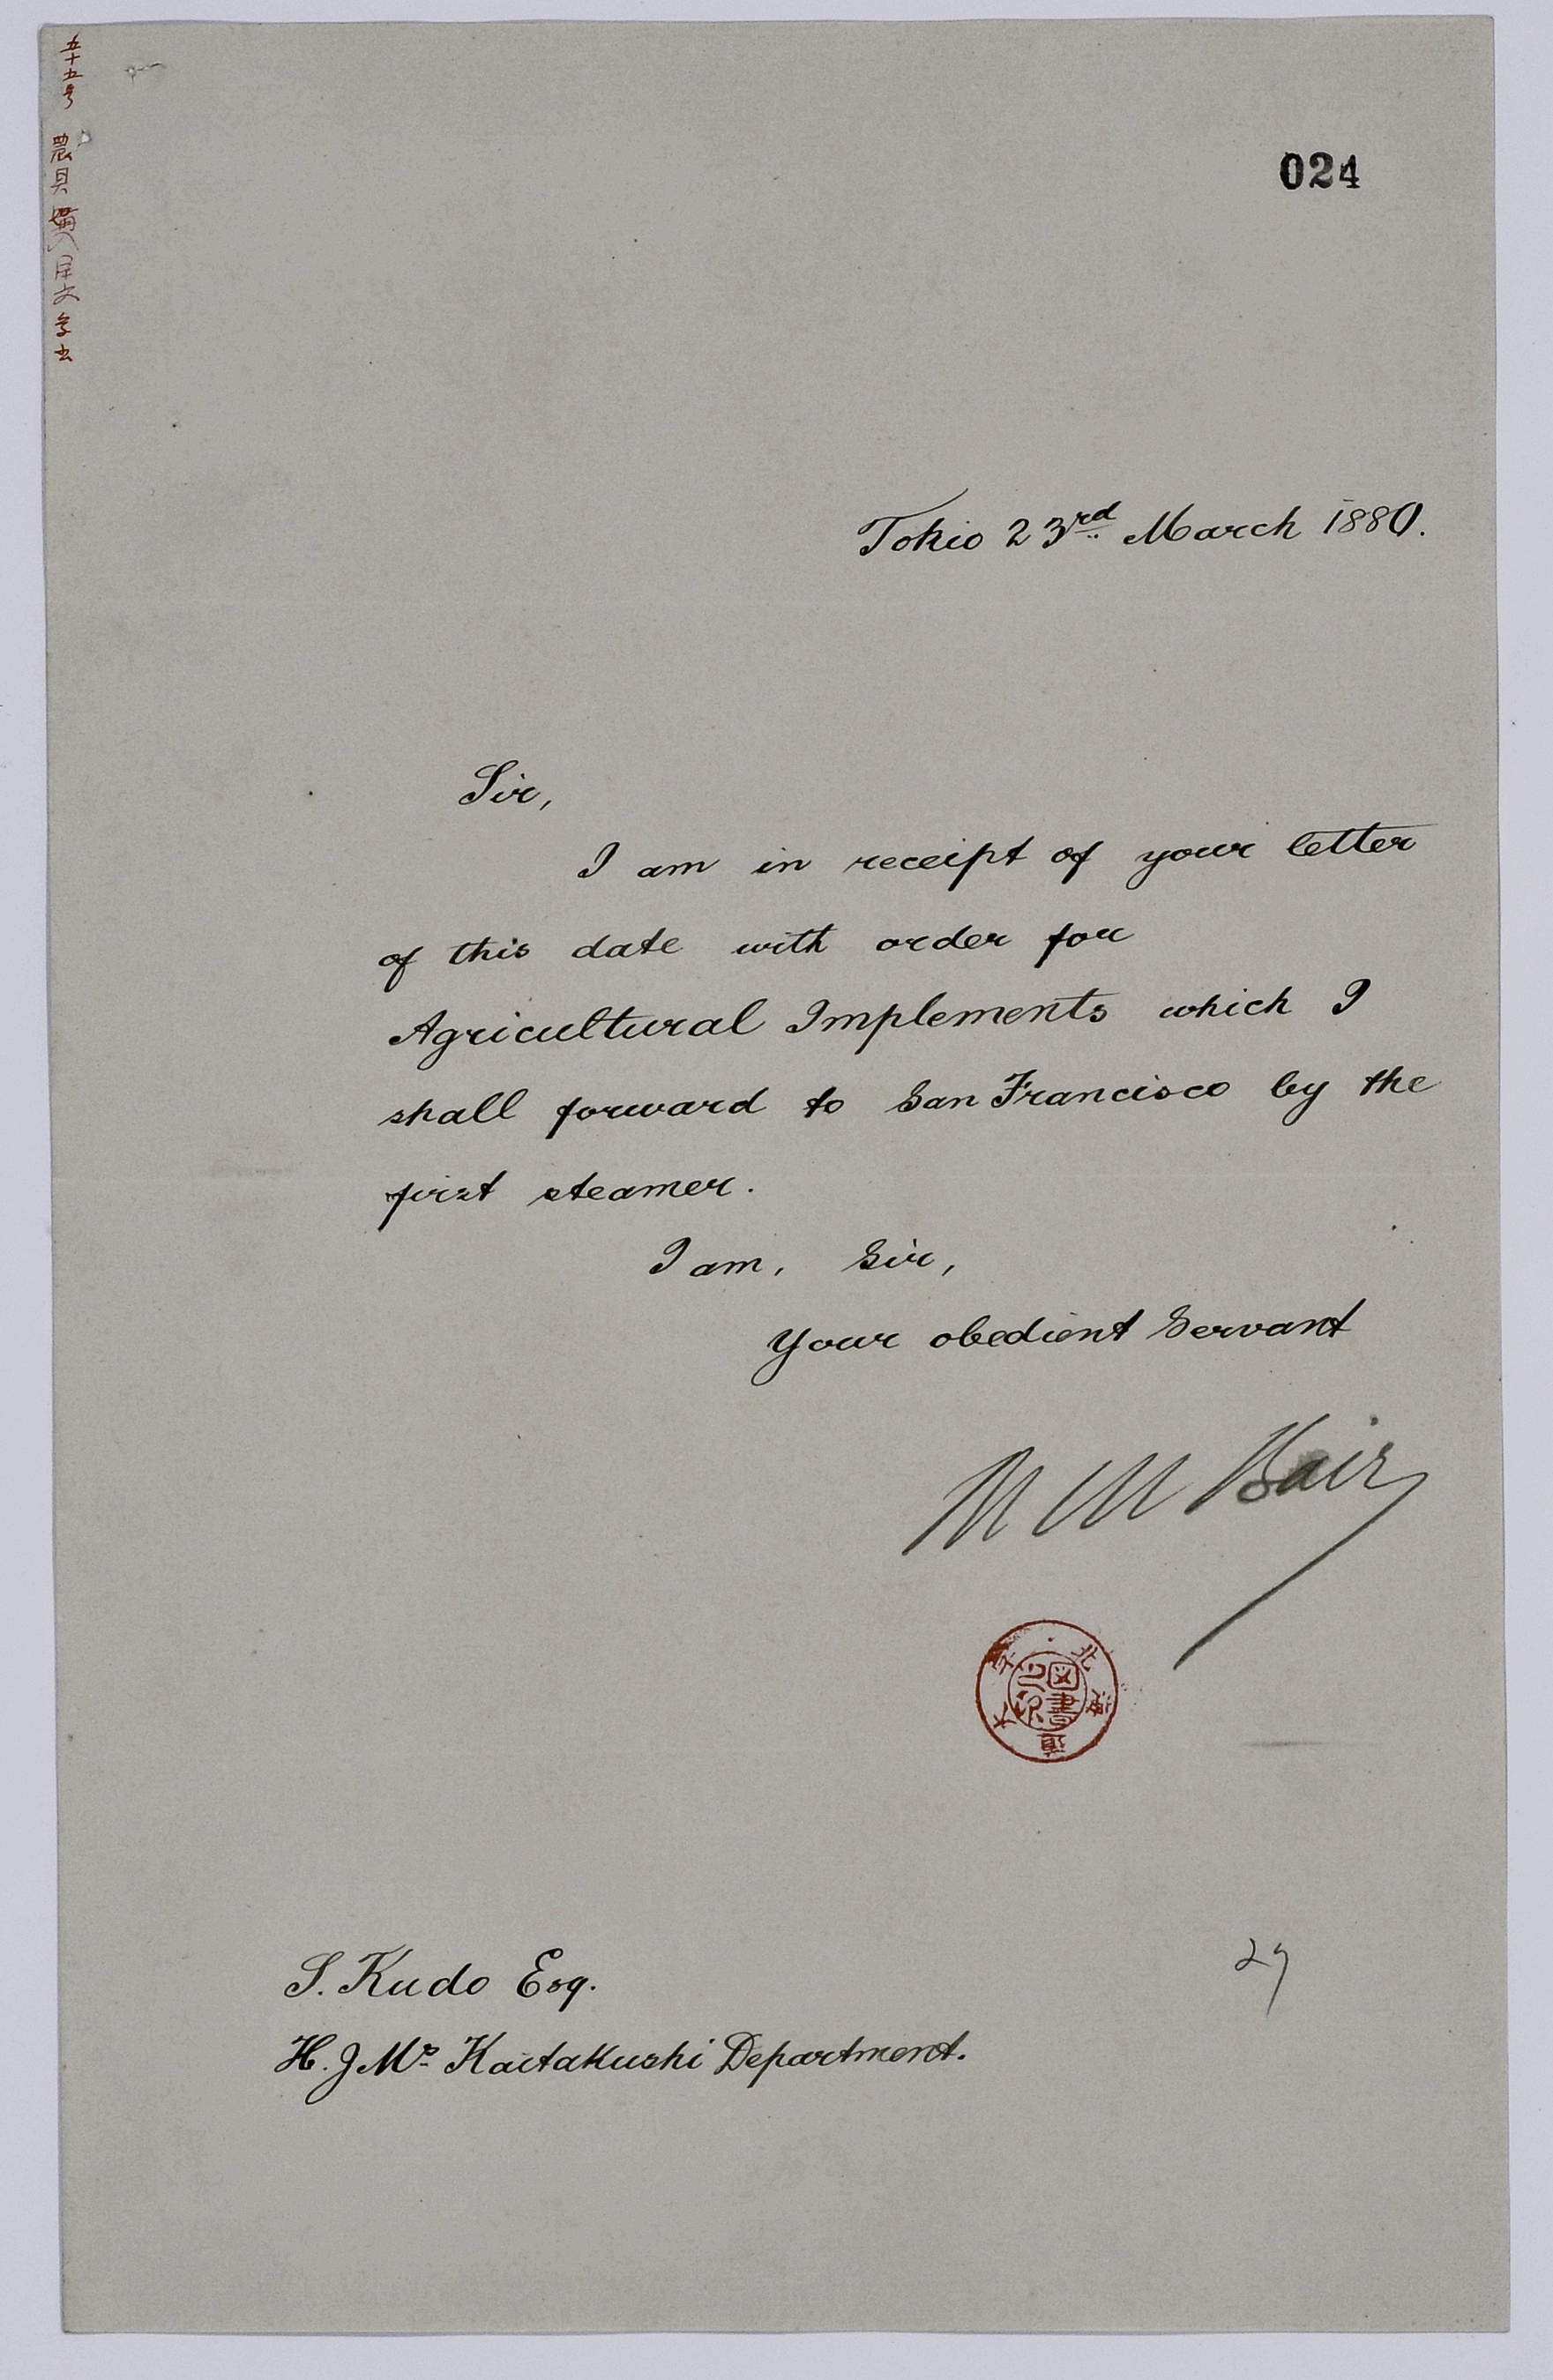 五十五号 農具購入注文全書
024
Tokio 23rd March 1880.
Sir,
I am in receipt of your letter
of this date with order for
Agricultural Implements which I
shall forward to San Francisco by the
first steamer.
I am, Sir,
Your obedient Servant
M M Bair
北海道大学
図書之印
S. Kudo Esq.
29
H. J. Ms Kaitakushi Department.